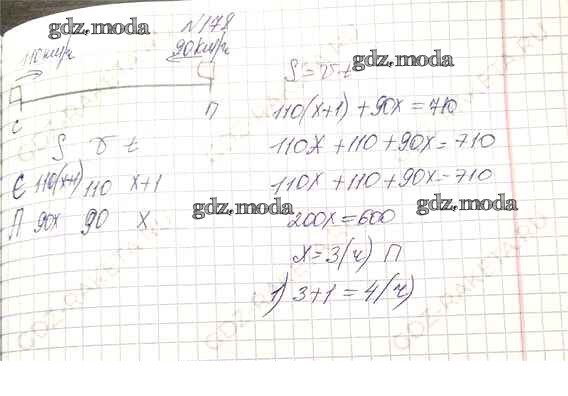 N178
110 км/ч
90 км/ч
С
П
S v t
С 110(x+1) 110 x+1
П 90x 90 x
S = v · t
110(x+1) + 90x = 710
110x + 110 + 90x = 710
110x + 110 + 90x = 710
200x = 600
x = 3(ч) П
1) 3+1 = 4(ч)
gdz.moda
gdz.moda
gdz.moda
gdz.moda
GDZ-RAKETA.RU